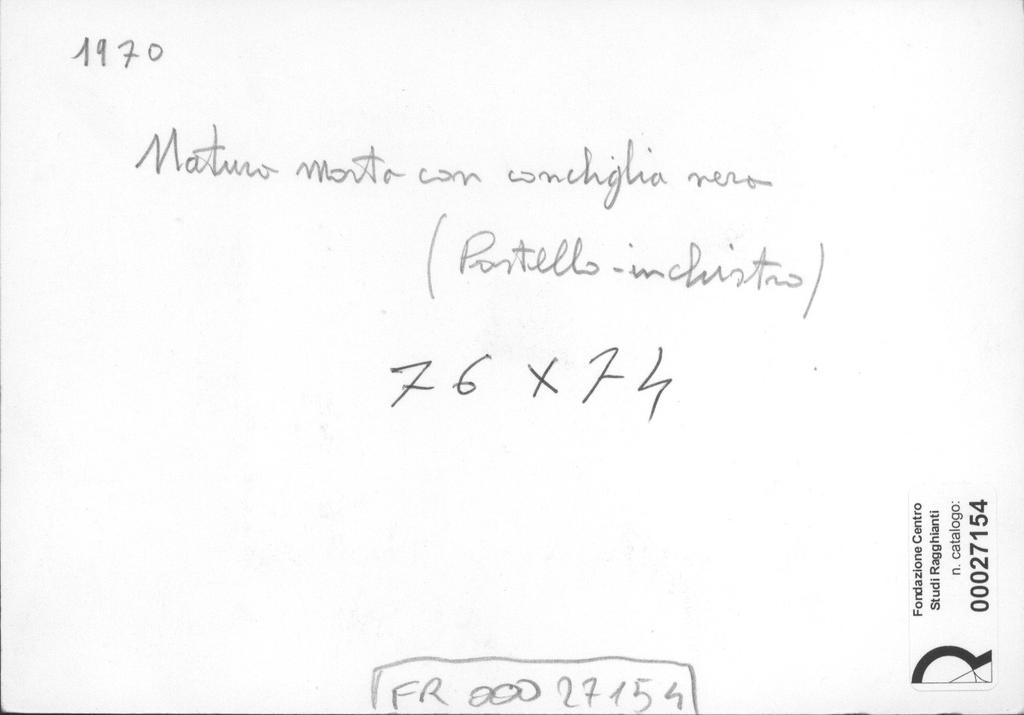 1970
Natura morta con conchiglia nera
(Pastello-inchiostro)
76 x 74
Fondazione Centro
Studi Ragghianti
n. catalogo:
00027154
FR 00027154